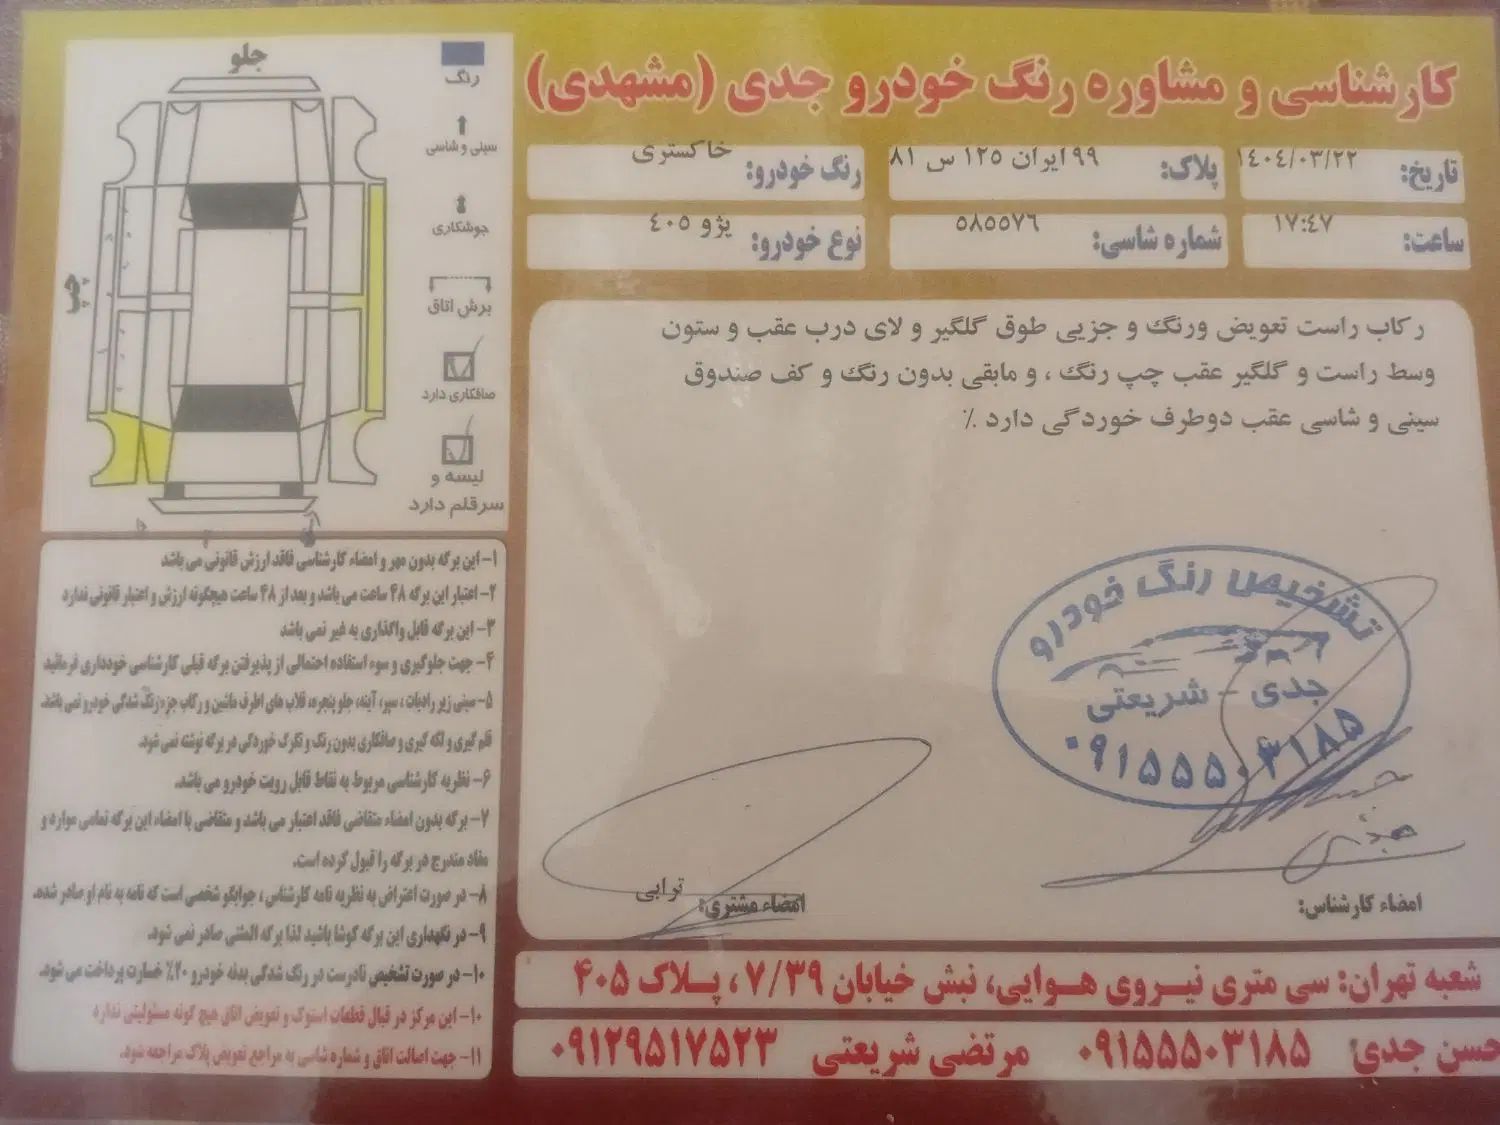 کارشناسی و مشاوره رنگ خودرو جدی (مشهدی)
تاریخ: ۱٤۰٤/۰۳/۲۲
پلاک: ۹۹ ایران ۱۲۵ س ۸۱
رنگ خودرو: خاکستری
ساعت: ۱۷:٤۷
شماره شاسی: ۵۸۵۵۷٦
نوع خودرو: پژو ٤۰۵
رکاب راست تعویض ورنگ و جزیی طوق گلگیر و لای درب عقب و ستون
وسط راست و گلگیر عقب چپ رنگ ، و مابقی بدون رنگ و کف صندوق
سینی و شاسی عقب دوطرف خوردگی دارد ٪
تشخیص رنگ خودرو
جدی - شریعتی
۰۹۱۵۵۵۰۳۱۸۵
امضاء کارشناس:
امضاء مشتری: ترابی
جلو
چپ
رنگ
سینی و شاسی
جوشکاری
برش اتاق
صافکاری دارد
لیسه و
سرقلم دارد
۱- این برگه بدون مهر و امضاء کارشناسی فاقد ارزش قانونی می باشد
۲- اعتبار این برگه ۴۸ ساعت می باشد و بعد از ۴۸ ساعت هیچگونه ارزش و اعتبار قانونی ندارد
۳- این برگه قابل واگذاری به غیر نمی باشد
۴- جهت جلوگیری و سوء استفاده احتمالی از پذیرفتن برگه قبلی کارشناسی خودداری فرمائید
۵- سینی زیر رادیات ، سپر، آینه، جلو پنجره، قلاب های اطرف ماشین و رکاب جزء رنگ شدگی خودرو نمی باشد.
قلم گیری و لکه گیری و صافکاری بدون رنگ و تگرگ خوردگی در برگه نوشته نمی شود.
۶- نظریه کارشناسی مربوط به نقاط قابل رویت خودرو می باشد.
۷- برگه بدون امضاء متقاضی فاقد اعتبار می باشد و متقاضی با امضاء این برگه تمامی موارد و
مفاد مندرج در برگه را قبول کرده است.
۸- در صورت اعتراض به نظریه نامه کارشناس ، جوابگو شخصی است که نامه به نام او صادر شده.
۹- در نگهداری این برگه کوشا باشید لذا برگه المثنی صادر نمی شود.
۱۰- در صورت تشخیص نادرست در رنگ شدگی بدنه خودرو ۲۰٪ خسارت پرداخت می شود.
۱۰- این مرکز در قبال قطعات استوک و تعویض اتاق هیچ گونه مسئولیتی ندارد
۱۱- جهت اصالت اتاق و شماره شاسی به مراجع تعویض پلاک مراجعه شود.
شعبه تهران: سی متری نیروی هوایی، نبش خیابان ۷/۳۹ ، پلاک ۴۰۵
حسن جدی: ۰۹۱۵۵۵۰۳۱۸۵ مرتضی شریعتی ۰۹۱۲۹۵۱۷۵۲۳